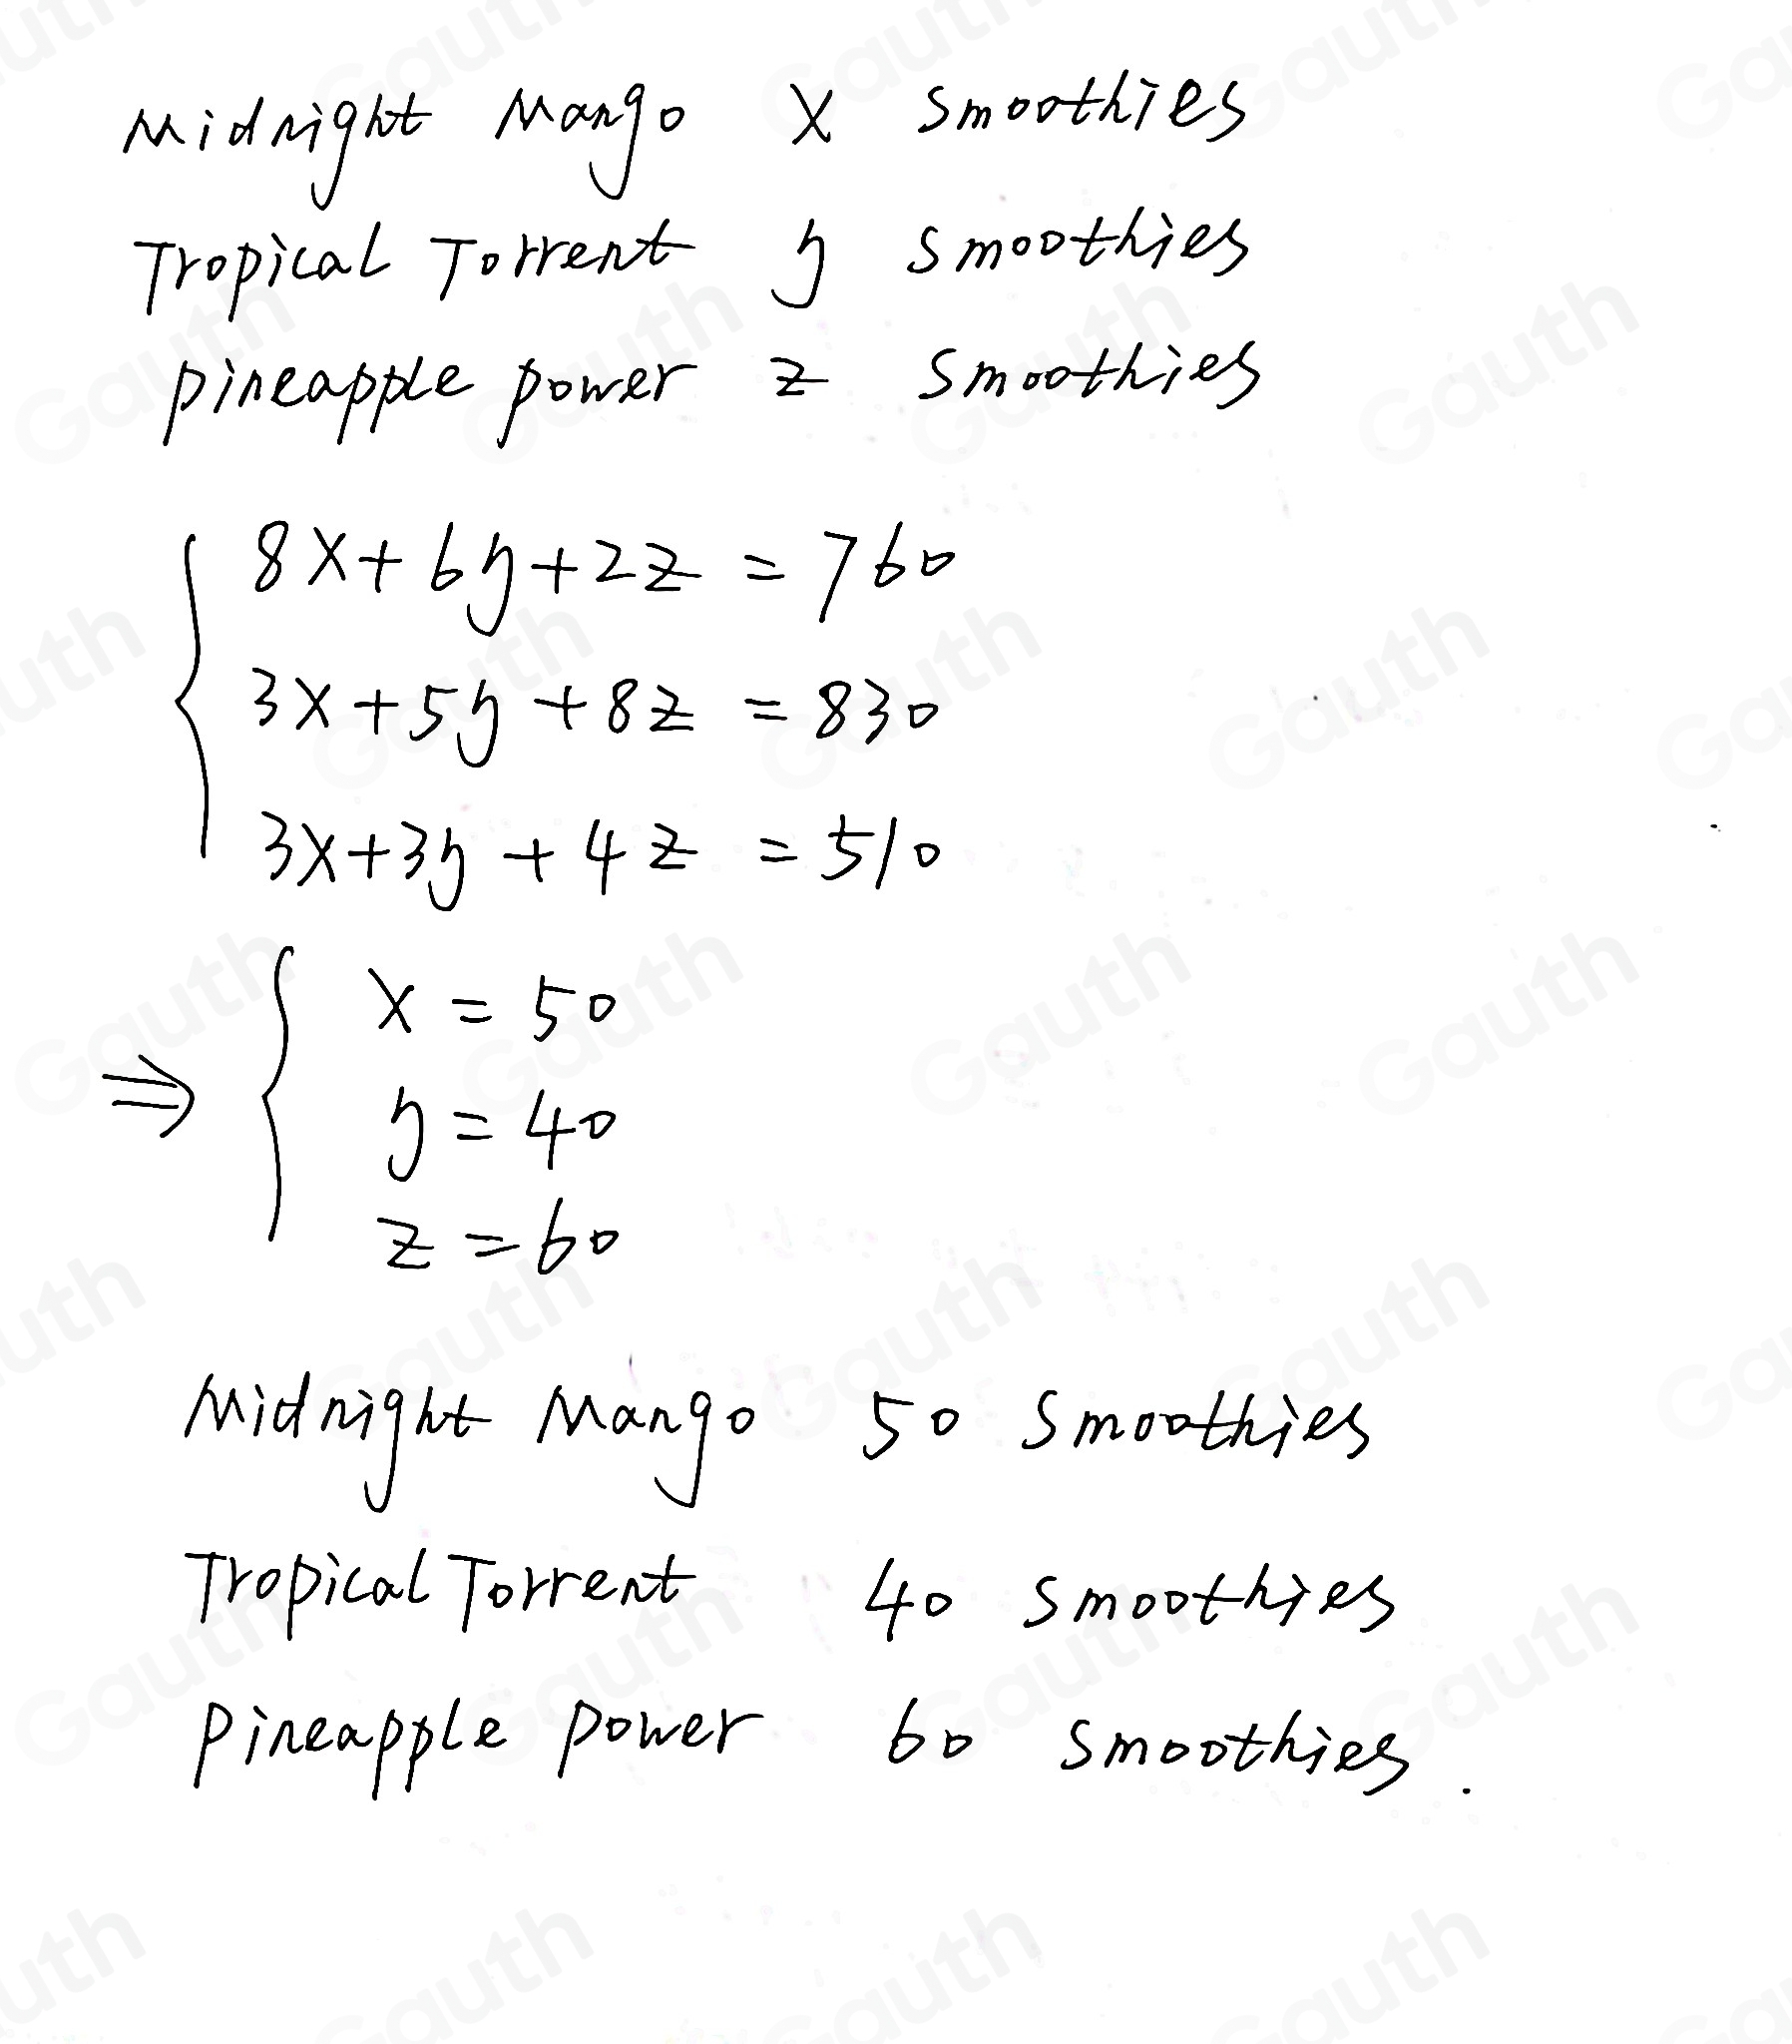 Midnight Mango X Smoothies
Tropical Torrent y Smoothies
pineapple power z Smoothies
8X+6y+2z = 760
3X+5y+8z = 830
3X+3y+4z = 510
⇒ X = 50
y = 40
z = 60
Midnight Mango 50 Smoothies
Tropical Torrent 40 Smoothies
Pineapple power 60 Smoothies.
Gauth